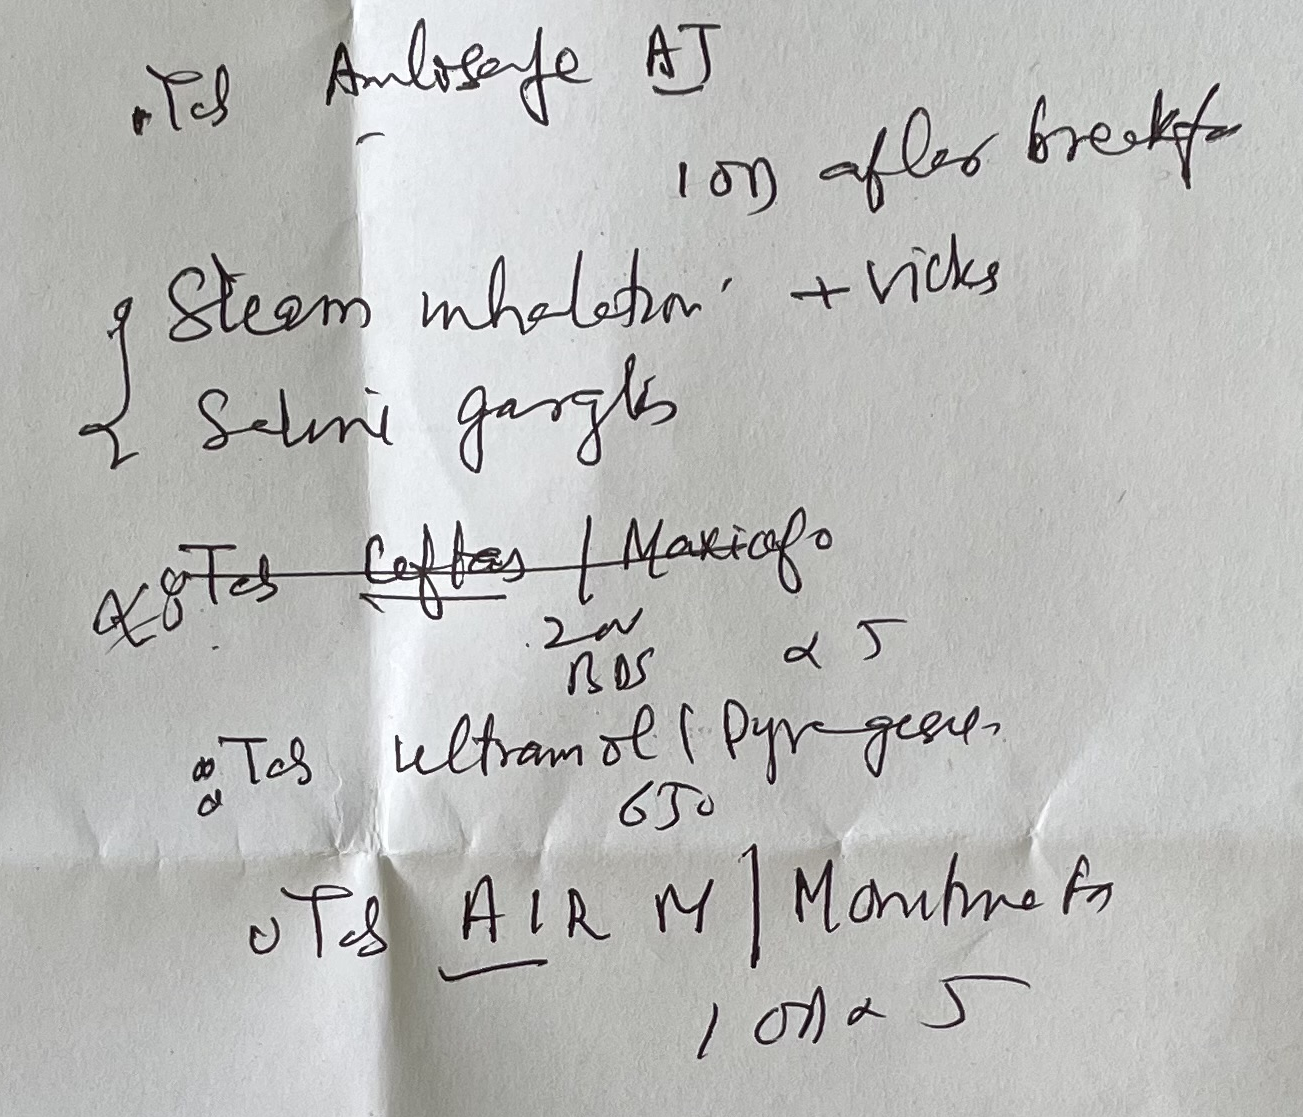 Tab Amlosafe AT
1 OD after breakfa
Steam inhalation + vicks
Saline gargles
Tab Ceftas /
200
BDS x 5
Tab Ultramol / Pyrigesic
650
Tab AIR M /
1 OD x 5